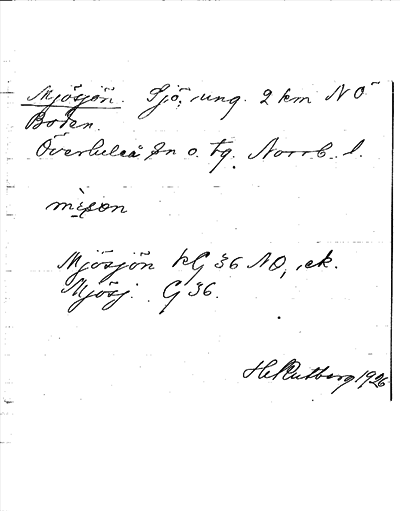 Mjösjön. Sjö, ung. 2 km NÖ
Boden.
Överluleå sn o. tg. Norrb. l.
Mjösjön kG 36 NO, ek.
Mjösj. G 36.
H. Rutberg 1926